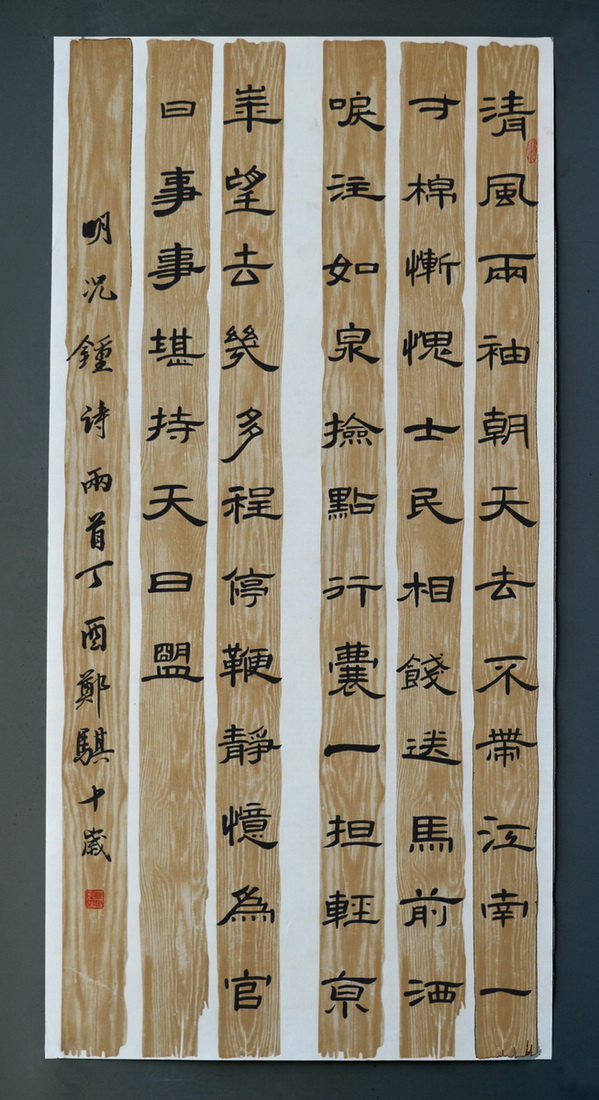 清風兩袖朝天去不帶江南一
寸棉慚愧士民相餞送馬前洒
淚注如泉撿點行囊一担輕京
華望去幾多程停鞭靜憶為官
日事事堪持天日盟
明況鍾詩兩首丁酉鄭騏十歲